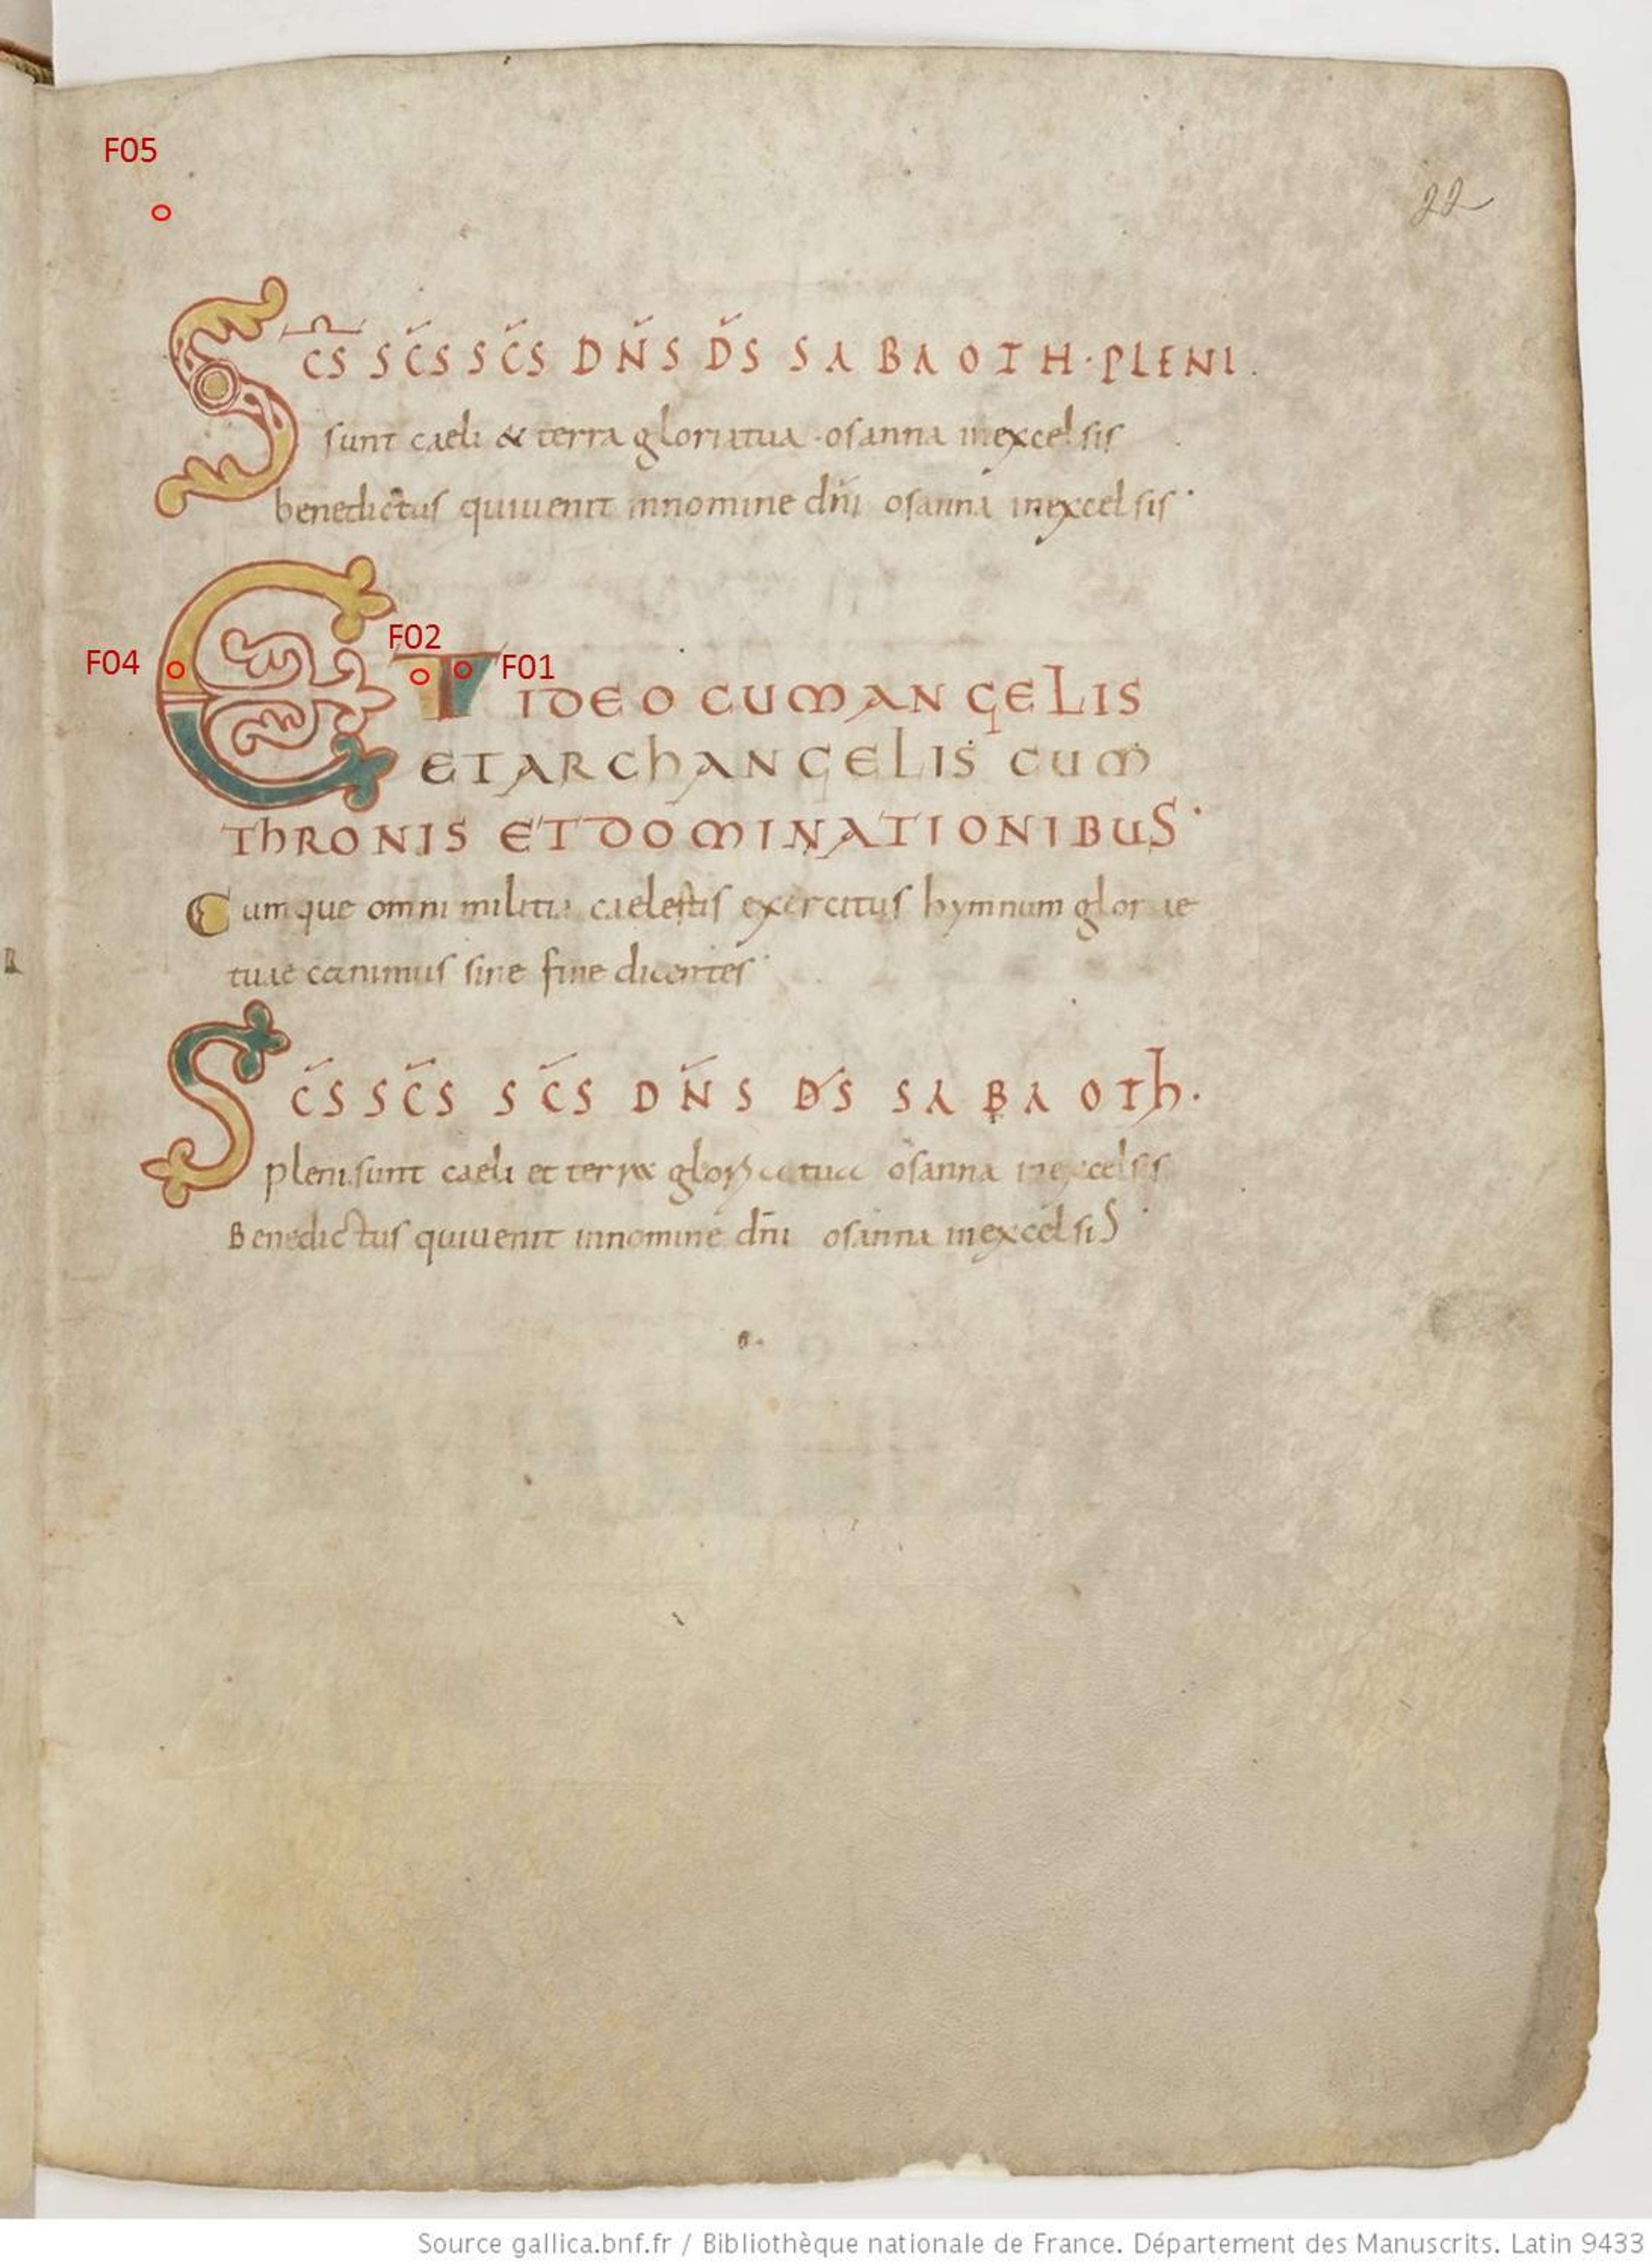 F05
22
SCS SCS SCS DNS DS SABAOTH · PLENI.
sunt caeli & terra gloriatua · osanna inexcelsis
benedictus quiuenit innomine dni osanna inexcelsis
F04 F02 F01
ET IDEO CUM ANGELIS
ET ARCHANGELIS CUM
THRONIS ET DOMINATIONIBUS
Cumque omni militia caelestis exercitus hymnum gloriae
tuae canimus sine fine dicentes
SCS SCS SCS DNS DS SABAOTh.
pleni.sunt caeli et terra gloria tua osanna inexcelsis
Benedictus quiuenit innomine dni osanna inexcelsiS
Source gallica.bnf.fr / Bibliothèque nationale de France. Département des Manuscrits. Latin 9433